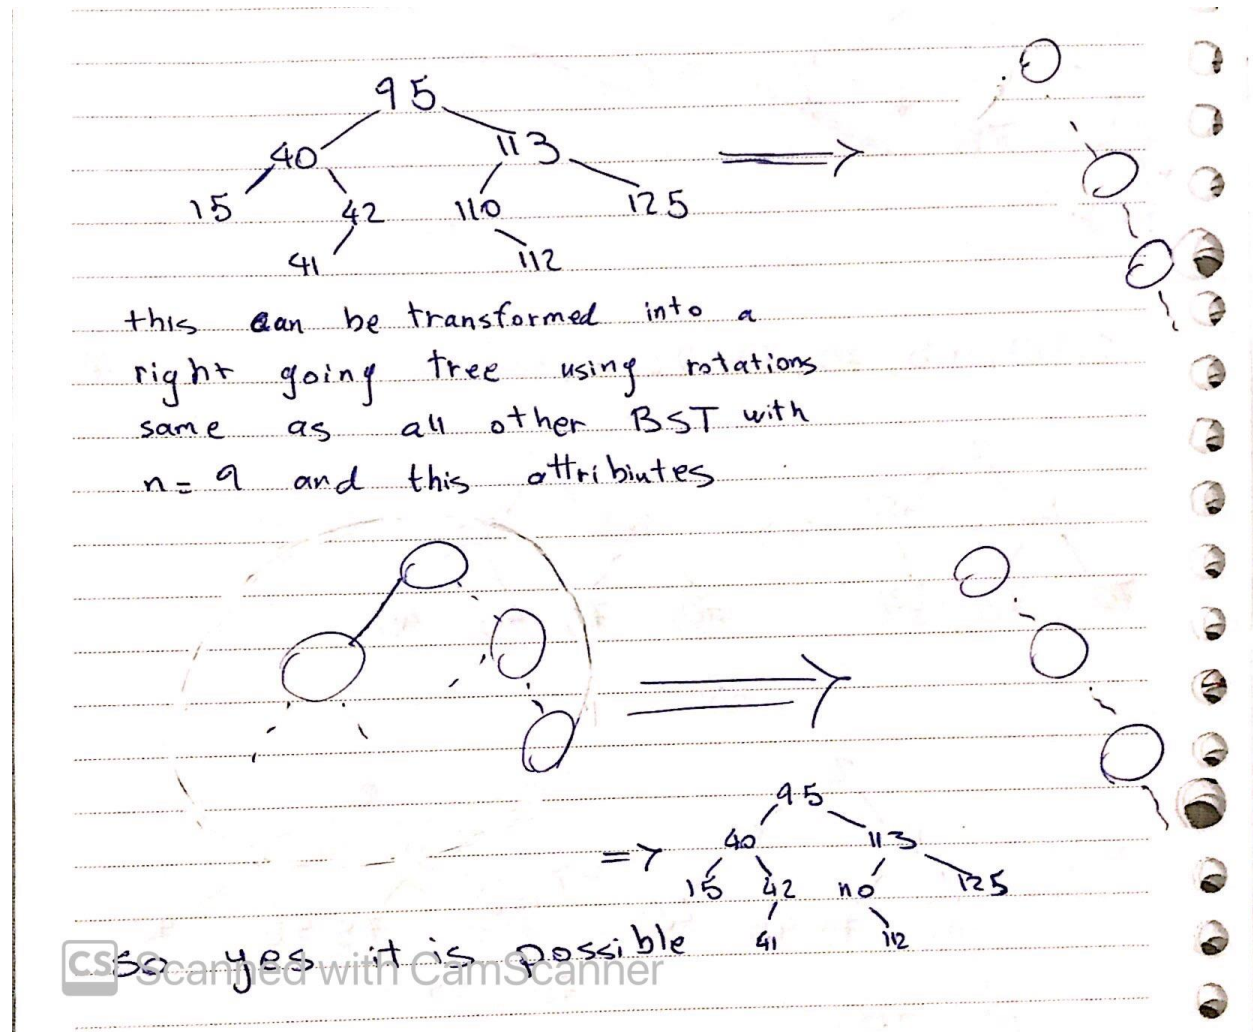 95
40 113
15 42 110 125
41 112
this can be transformed into a
right going tree using rotations
same as all other BST with
n = 9 and this attribiutes
95
=> 40 113
15 42 110 125
41 112
so yes it is possible
CS Scanned with CamScanner